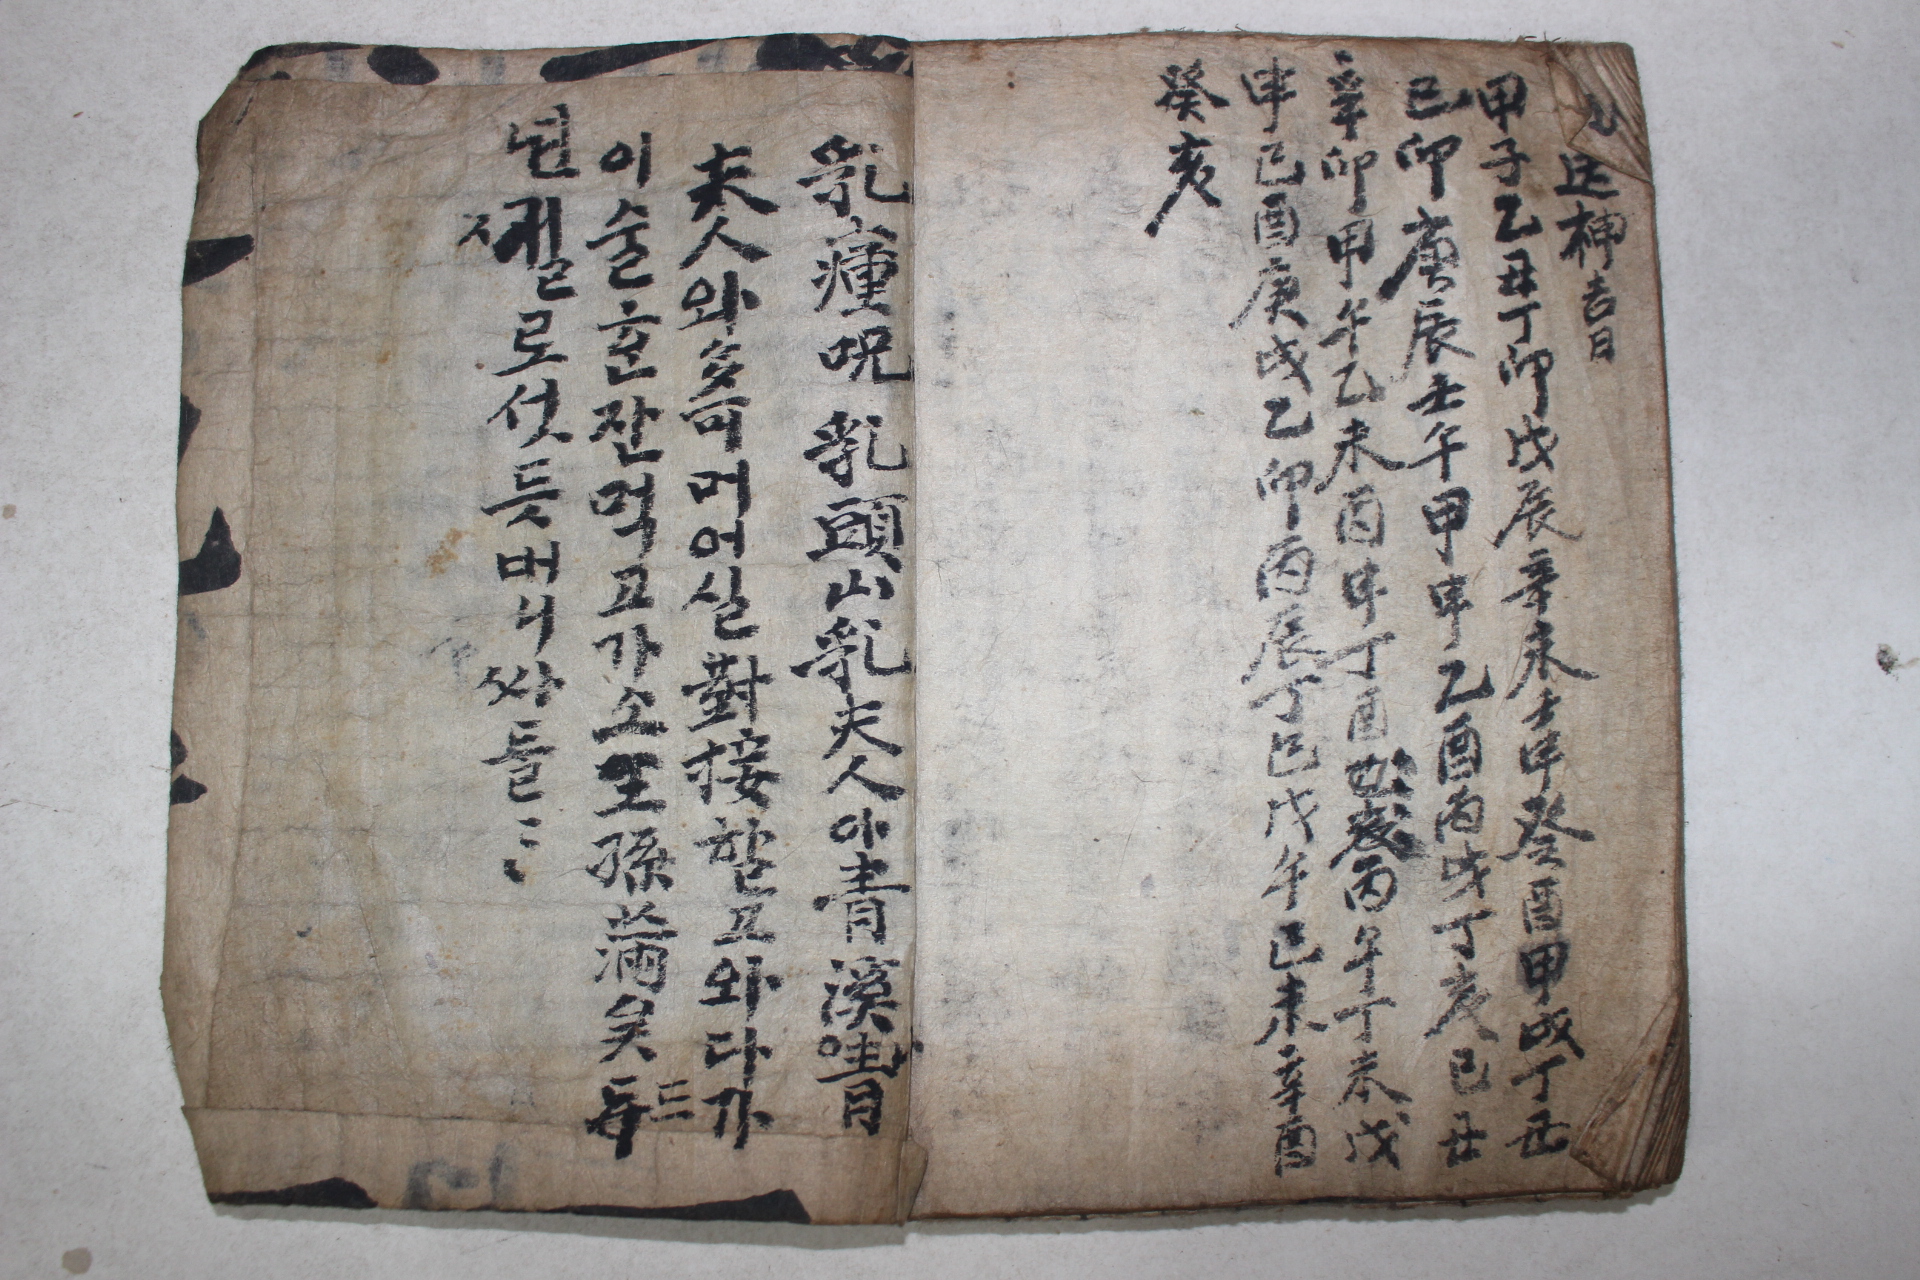 送神吉日
甲子乙丑丁卯戊辰辛未壬申癸酉甲戌丁丑
己卯庚辰壬午甲申乙酉丙戌丁亥己丑
辛卯甲午乙未酉申丁酉 丙午丁未戊
申己酉庚戌乙卯丙辰丁巳戊午己未辛酉
癸亥
乳瘇呪 乳頭山乳夫人아青溪 青
夫人와 머어실對接할고와다가
이술 잔먹고가소王孫滿矣
 로섯듯머니 들